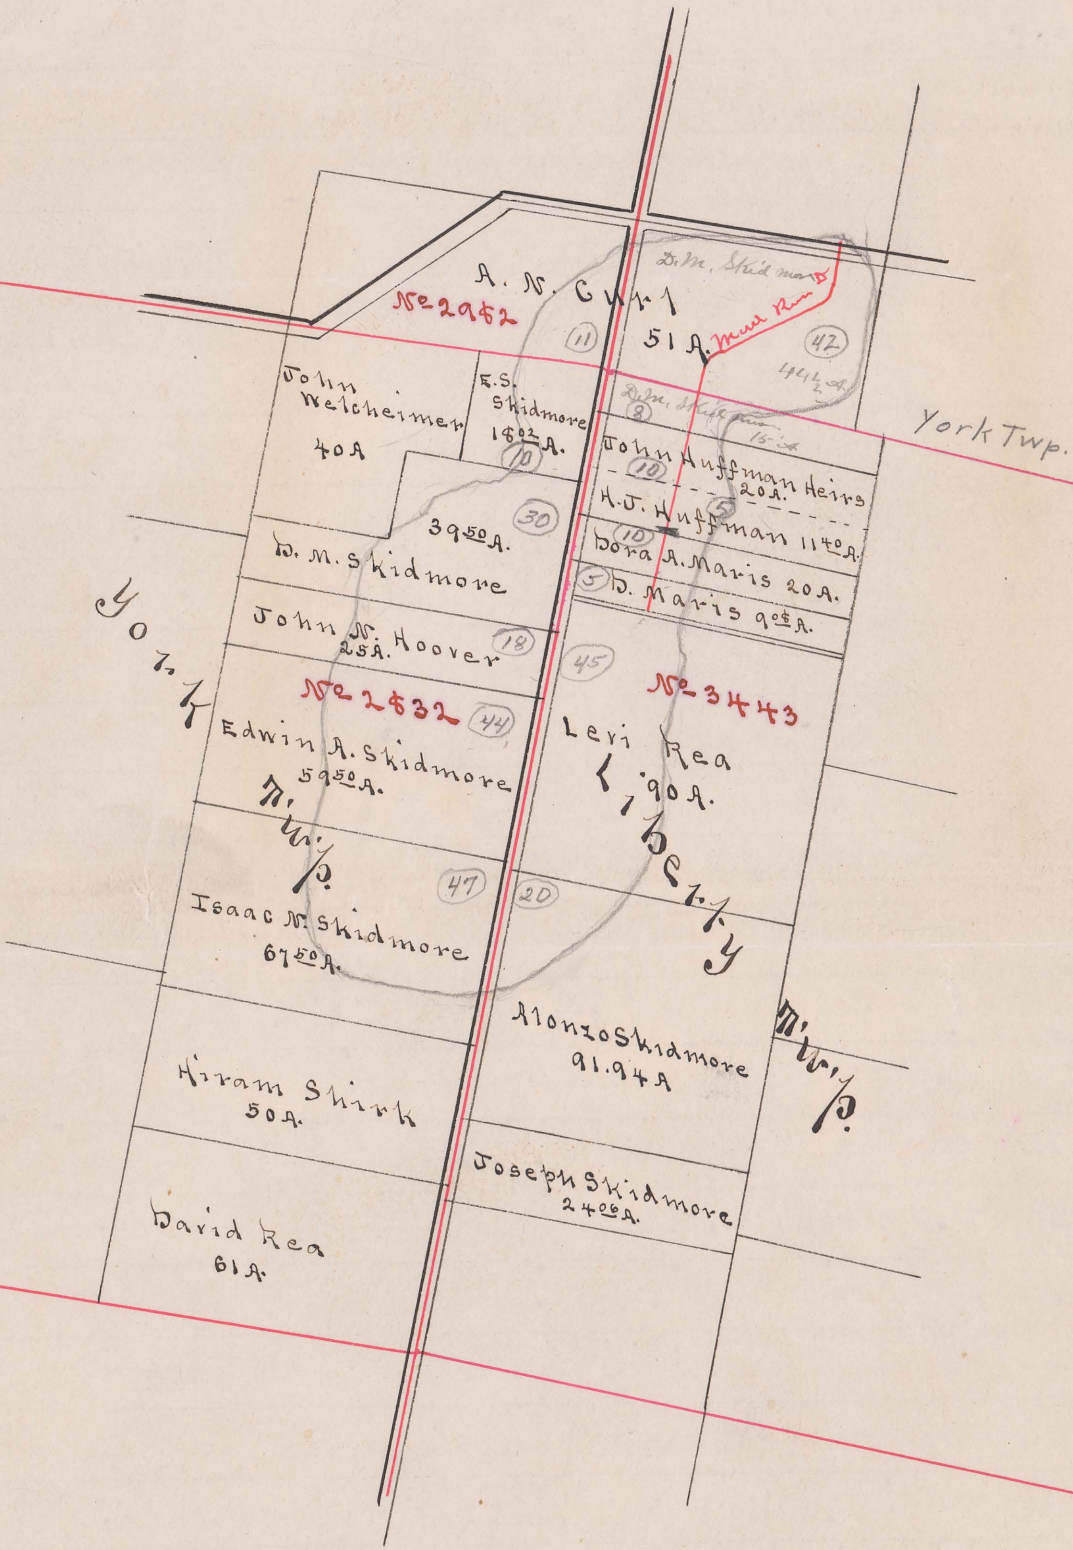 D. M. Skidmore
A. N. Curl
No 2982
51 A.
Mud Run D
11
42
44½ A.
York Twp.
John
Welcheimer
40 A
E. S.
Skidmore
18 02 A.
10
D. M. Skidmore
8
15 A
John Huffman Heirs
20 A.
10
H. J. Huffman 11 40 A.
5
10
Dora A. Maris 20 A.
5
D. Maris 9 08 A.
39 50 A.
30
D. M. Skidmore
John N. Hoover
25 A.
18
45
No 2832
44
No 3443
Edwin A. Skidmore
59 50 A.
Levi Rea
90 A.
York Twp.
Liberty Twp.
47
20
Isaac N. Skidmore
67 50 A.
Alonzo Skidmore
91.94 A
Hiram Shirk
50 A.
Joseph Skidmore
24 06 A.
David Rea
61 A.